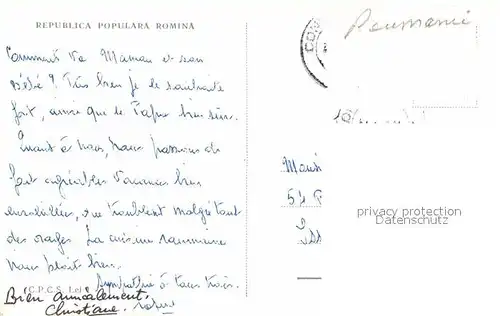 REPUBLICA POPULARA ROMINA
Roumanie
Comment va Maman et son
Bébé ? Très bien je le souhaite
fort, ainsi que le Papa bien sûr.
Quant à nous, nous passons de
fort agréables vacances bien
ensoleillées, que troublent malgré tout
des orages. La cuisine roumaine
nous plaît bien.
Sympathie à tous trois.
C.P.C.S. Lei
Bien amicalement,
Christiane.
54
privacy protection
Datenschutz